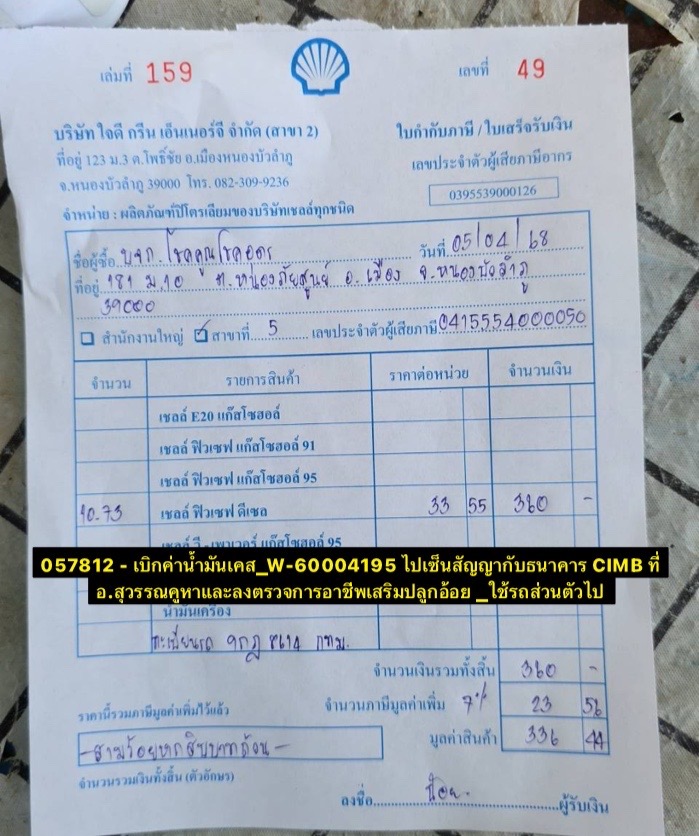 เล่มที่ 159
เลขที่ 49
บริษัท ใจดี กรีน เอ็นเนอร์จี จำกัด (สาขา 2)
ใบกำกับภาษี / ใบเสร็จรับเงิน
ที่อยู่ 123 ม.3 ต.โพธิ์ชัย อ.เมืองหนองบัวลำภู
เลขประจำตัวผู้เสียภาษีอากร
จ.หนองบัวลำภู 39000 โทร. 082-309-9236
0395539000126
จำหน่าย : ผลิตภัณฑ์ปิโตรเลียมของบริษัทเชลล์ทุกชนิด
ชื่อผู้ซื้อ บจก. โชคคูณโชคอุดร วันที่ 05/04/68
ที่อยู่ 181 ม.10 ต.หนองภัยศูนย์ อ.เมือง จ.หนองบัวลำภู
39000
สำนักงานใหญ่ สาขาที่ 5 เลขประจำตัวผู้เสียภาษี 0415554000050
จำนวน รายการสินค้า ราคาต่อหน่วย จำนวนเงิน
เชลล์ E20 แก๊สโซฮอล์
เชลล์ ฟิวเซฟ แก๊สโซฮอล์ 91
เชลล์ ฟิวเซฟ แก๊สโซฮอล์ 95
10.73 เชลล์ ฟิวเซฟ ดีเซล 33 55 360 -
เชลล์ วี - เพาเวอร์ แก๊สโซฮอล์ 95
057812 - เบิกค่าน้ำมันเคส_W-60004195 ไปเซ็นสัญญากับธนาคาร CIMB ที่
อ.สุวรรณคูหาและลงตรวจการอาชีพเสริมปลูกอ้อย _ใช้รถส่วนตัวไป
น้ำมันเครื่อง
ทะเบียนรถ 9กฎ 8614 กทม.
จำนวนเงินรวมทั้งสิ้น 360 -
ราคานี้รวมภาษีมูลค่าเพิ่มไว้แล้ว
จำนวนภาษีมูลค่าเพิ่ม 7% 23 56
-สามร้อยหกสิบบาทถ้วน-
มูลค่าสินค้า 336 44
จำนวนรวมเงินทั้งสิ้น (ตัวอักษร)
ลงชื่อ ผู้รับเงิน